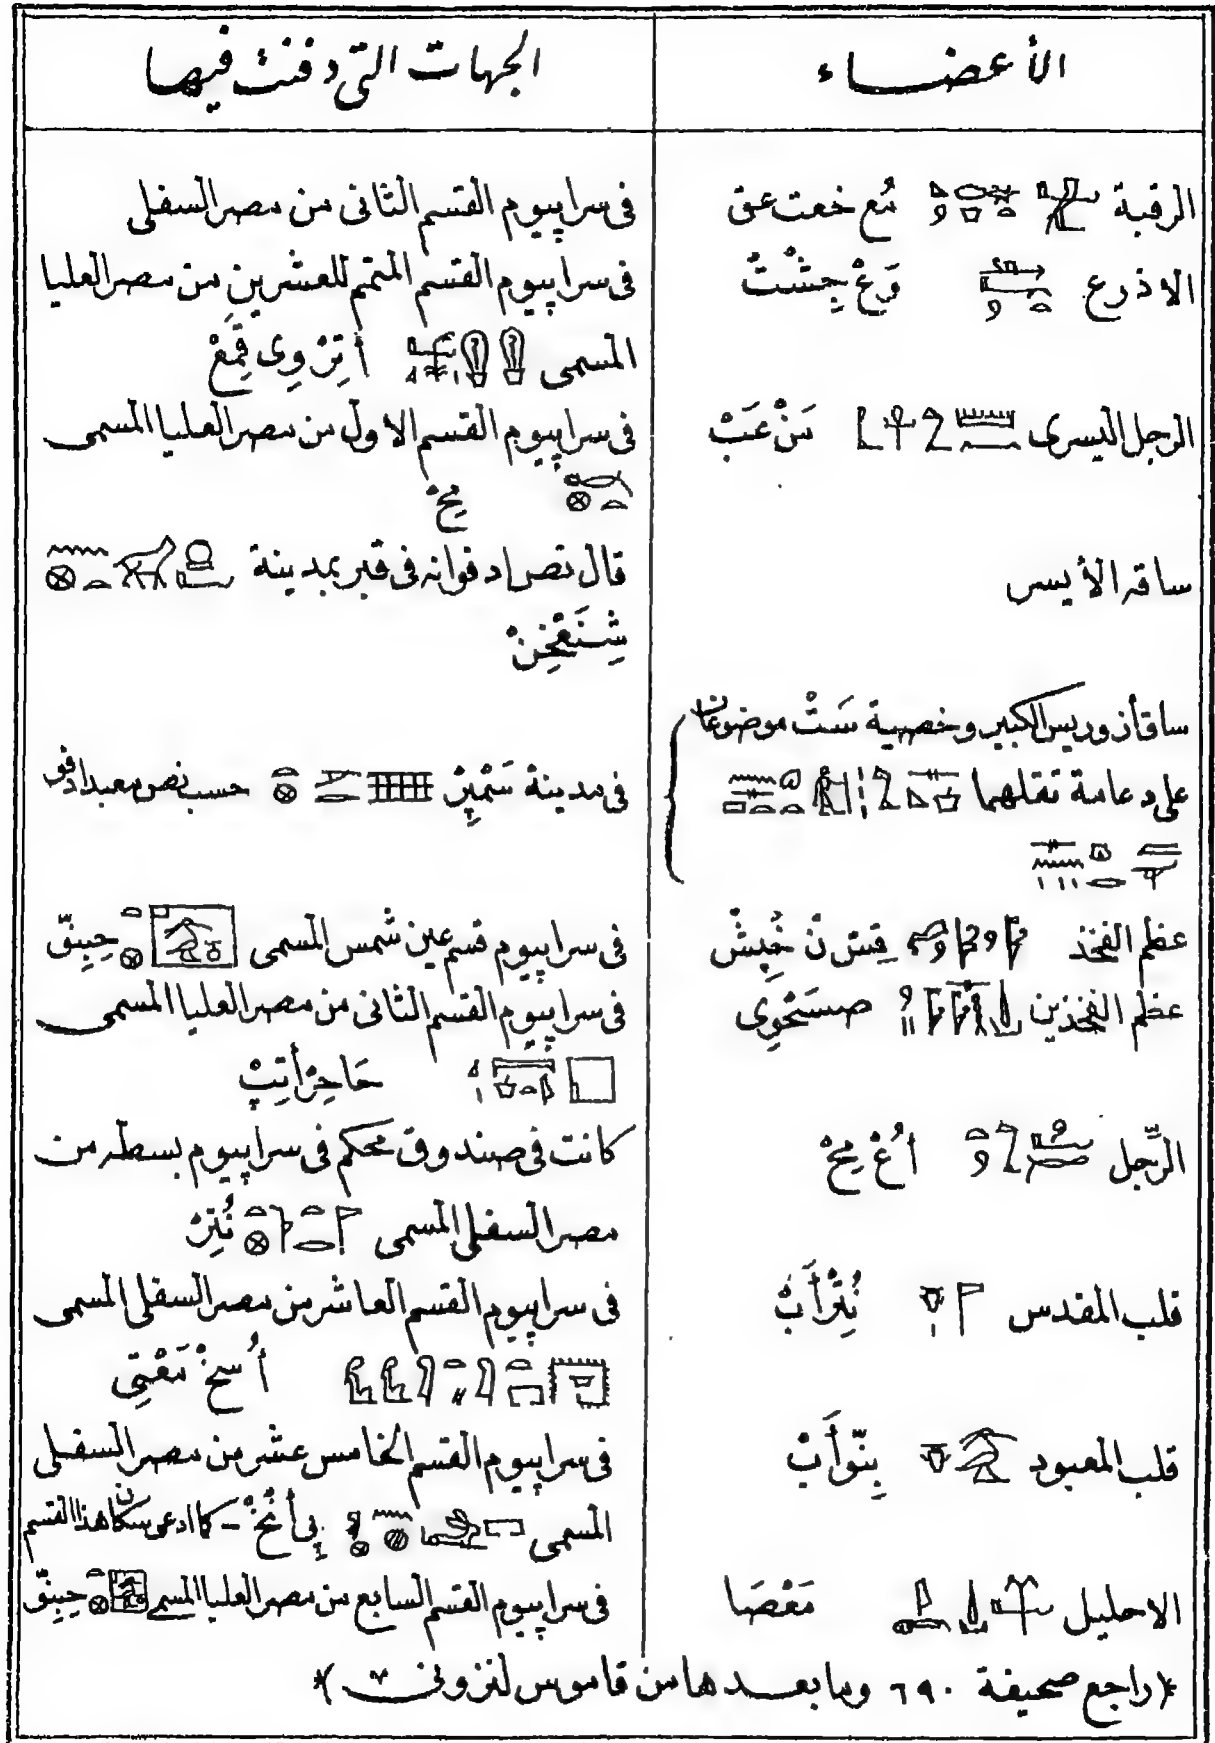 الأعضاء
الجهات التى دفنت فيها
الرقبة مُع خعت عق
فى سرابيوم القسم الثانى من مصر السفلى
الاذرع وَعْ جِشْتْ
فى سرابيوم القسم المتمم للعشرين من مصر العليا
المسمى أتِرْ وِى قِمَعْ
الرجل اليسرى مَنْ عَبْ
فى سرابيوم القسم الاول من مصر العليا المسمى
يَخْ
ساقه الأيسر
قال نص ادفوانه فى قبر بمدينة
شِنَعْخِنْ
ساقا أزوريس الكبير وخصية سَتْ موضوعان
على دعامة تقلهما
فى مدينة سَمْپِرْ حسب نص معبد ادفو
عظم الفخذ قِسْ نْ خُپِشْ
فى سرابيوم قسم عين شمس المسمى حِبِنّ
عظم الفخذين صسَحْوِى
فى سرابيوم القسم الثانى من مصر العليا المسمى
حَاحِرْ أتِپْ
الرِّجل أُعْ مِحْ
كانت فى صندوق محكم فى سرابيوم بسطه من
مصر السفلى المسمى نُتِرْ
قلب المقدس نِتْرْأَبْ
فى سرابيوم القسم العاشر من مصر السفلى المسمى
أُسِخْ مَعْتِى
قلب المعبود بِنّوأَبْ
فى سرابيوم القسم الخامس عشر من مصر السفلى
المسمى پِى أُنْخْ - كما ادعى سكان هذا القسم
الاحليل مَعْصَا
فى سرابيوم القسم السابع من مصر العليا المسمى حِبِنّ
(راجع صحيفة ٦٩٠ وما بعدها من قاموس لنزونى)